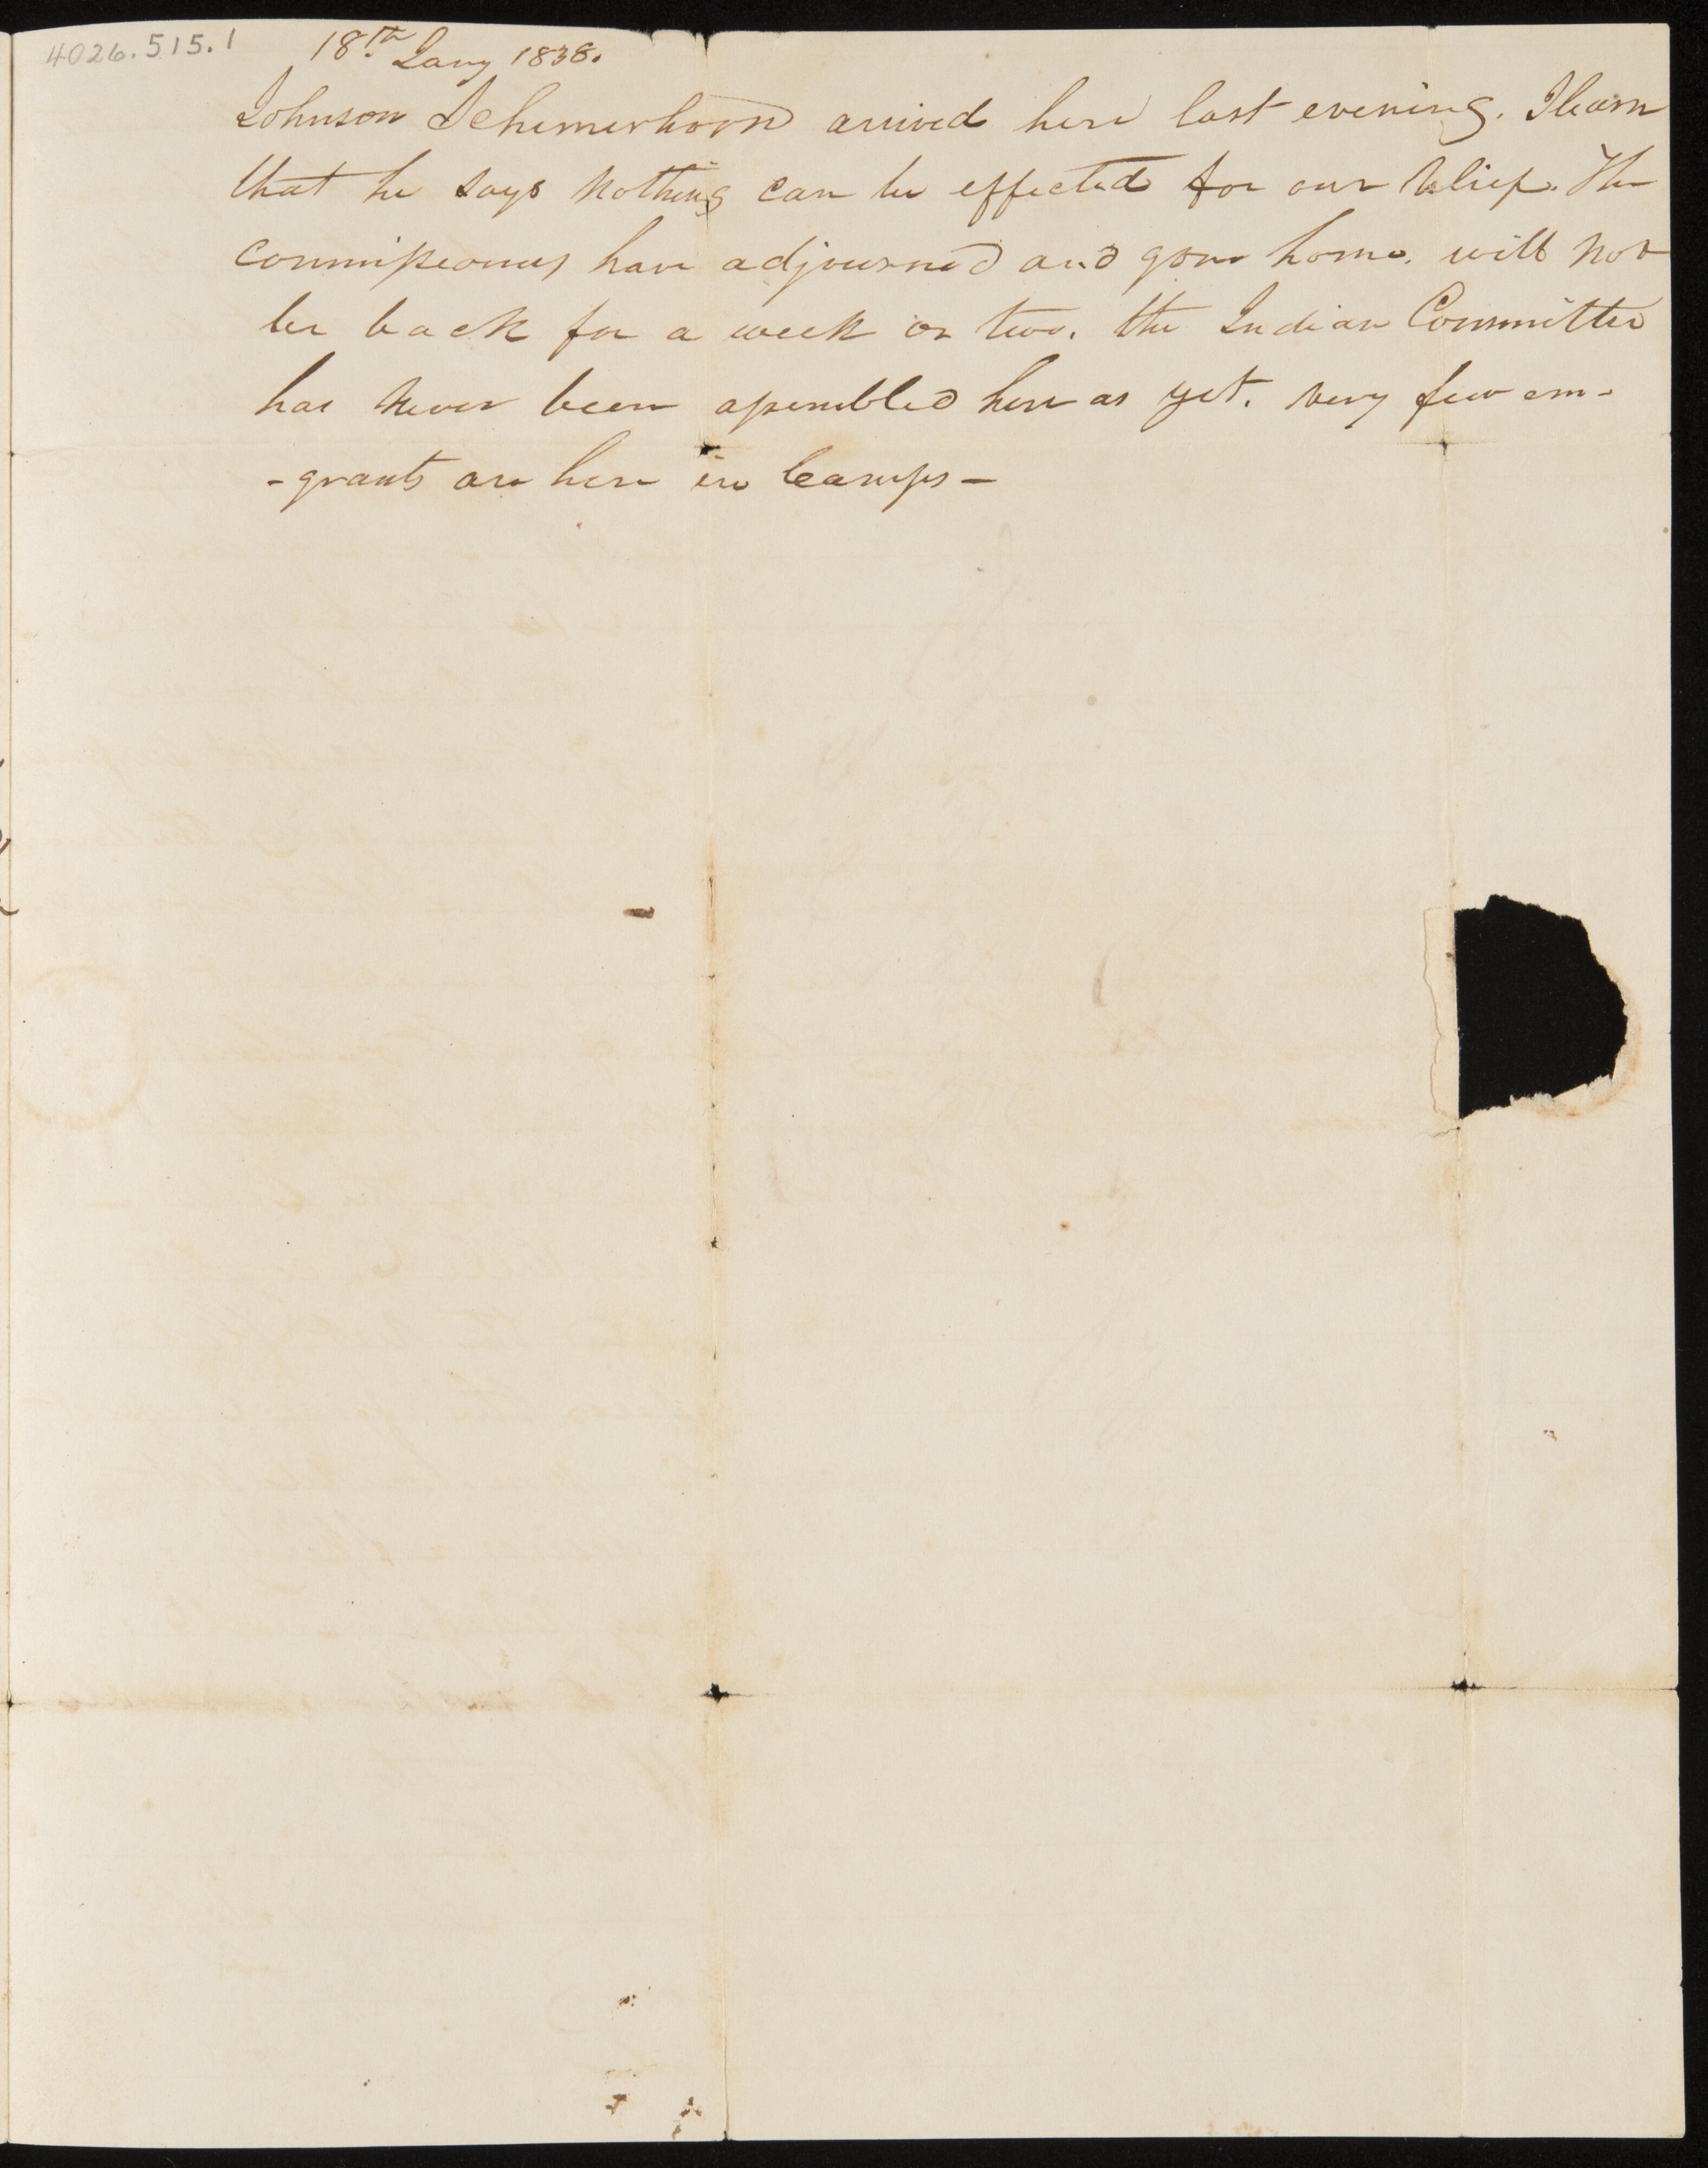 4026.515.1
18th Jany 1838.
Johnson Schemerhorn arrived here last evening. I learn
that he says nothing can be effected for our relief. The
commissioners have adjourned and gone home. will not
be back for a week or two. the Indian Committee
has never been assembled here as yet. very few em-
-grants are here in Camps -